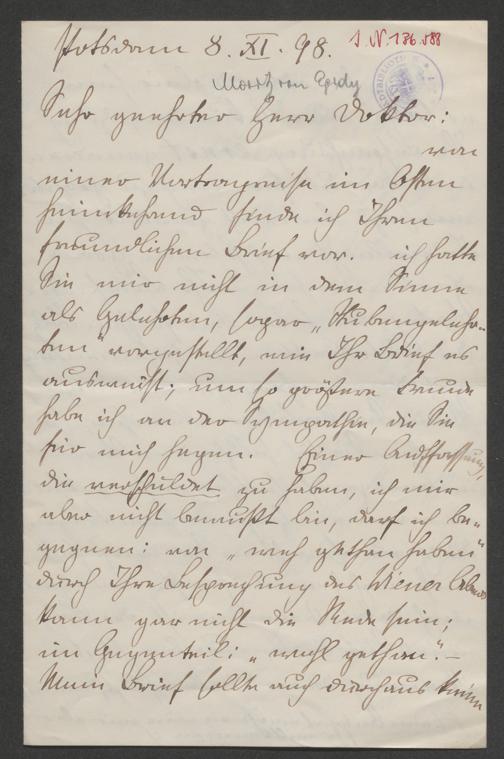 Potsdam 8. XI. 98.
I. N. 136.588
Moritz von Egidy
Sehr geehrter Herr Doktor:
von
einer Vortragsreise im Osten
heimkehrend finde ich Ihren
freundlichen Brief vor. ich hatte
Sie mir nicht in dem Sinne
als Gelehrten, sogar „Stubengelehr-
ten" vorgestellt, wie Ihr Brief es
ausweist; um so größere Freude
habe ich an der Sympathie, die Sie
für mich hegen. Einer Auffassung,
die verschuldet zu haben, ich mir
aber nicht bewußt bin, darf ich be-
gegnen: von „weh gethan haben"
durch Ihre Besprechung des Wiener
kann gar nicht die Rede sein;
im Gegenteil: „wohl gethan". –
Mein Brief sollte auch durchaus keinen